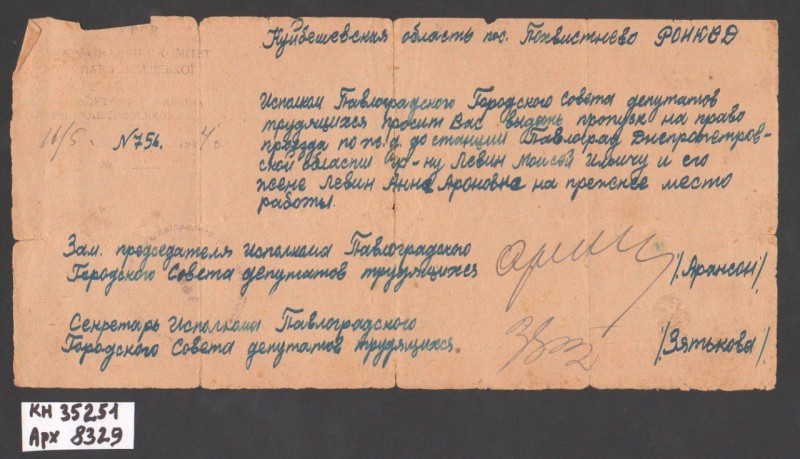 Куйбешевская область пос. Похвистнево РОНКВД
Исполком Павлоградского Городского Совета депутатов
трудящихся просит Вас выдать пропуск на право
проезда по ж.д. до станции Павлоград Днепропетров-
ской области гр-ну Левин Мойсей Ильичу и его
жене Левин Анне Ароновне на прежнее место
работы.
16/5. N 756.
Зам. председателя Исполкома Павлоградского
Городского Совета депутатов трудящихся /Арансон/
Секретарь Исполкома Павлоградского
Городского Совета депутатов трудящихся. /Зятькова/.
КН 35251
Арх 8329